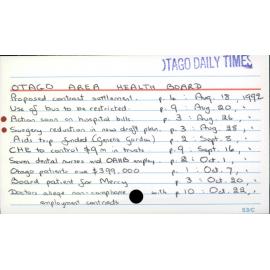 OTAGO DAILY TIMES
OTAGO AREA HEALTH BOARD
Proposed contract settlement. p. 4 : Aug. 18, 1992
Use of bus to be restricted. p. 9 : Aug. 20, "
Action soon on hospital bills. p. 3 : Aug 26, "
Surgery reduction in new draft plan. p. 3 : Aug. 28, "
Aids trip funded (Geneva Gordon) p. 2 : Sept. 8, "
CHE to control $9m in trusts p. 9 : Sept. 16, "
Seven dental nurses and OAHB employ. p. 2 : Oct. 1, "
Otago patients owe $399,000 p. 1 : Oct. 7, "
Board patient for Mercy p. 3 : Oct. 20, "
Doctors allege non-compliance with p. 10 : Oct. 22, "
employment contracts